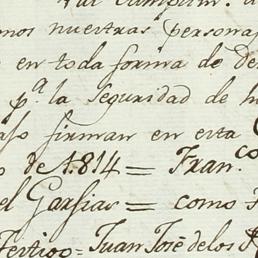 cumplim.
nos nuestras persona
e en toda forma de de
pª la seguridad de
firman en esta
o de 1814 = Fran.co
el Garfias = como
Testigo = Juan José de los